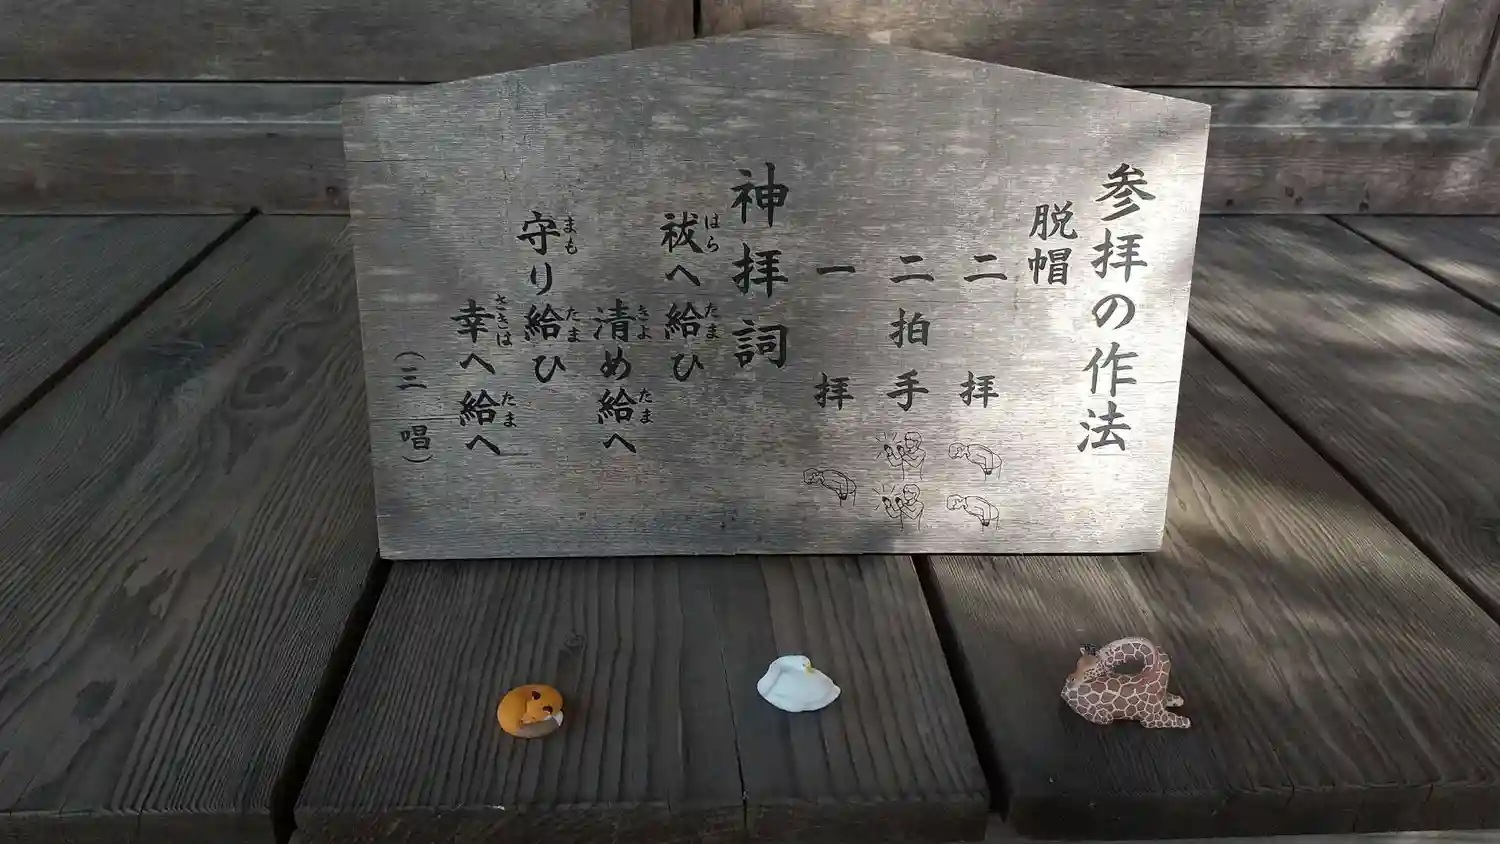 参拝の作法
脱帽
二拝
二拍手
一拝
神拝詞
祓へ給ひ
はら たま
清め給へ
きよ たま
守り給ひ
まも たま
幸へ給へ
さきは たま
(三唱)